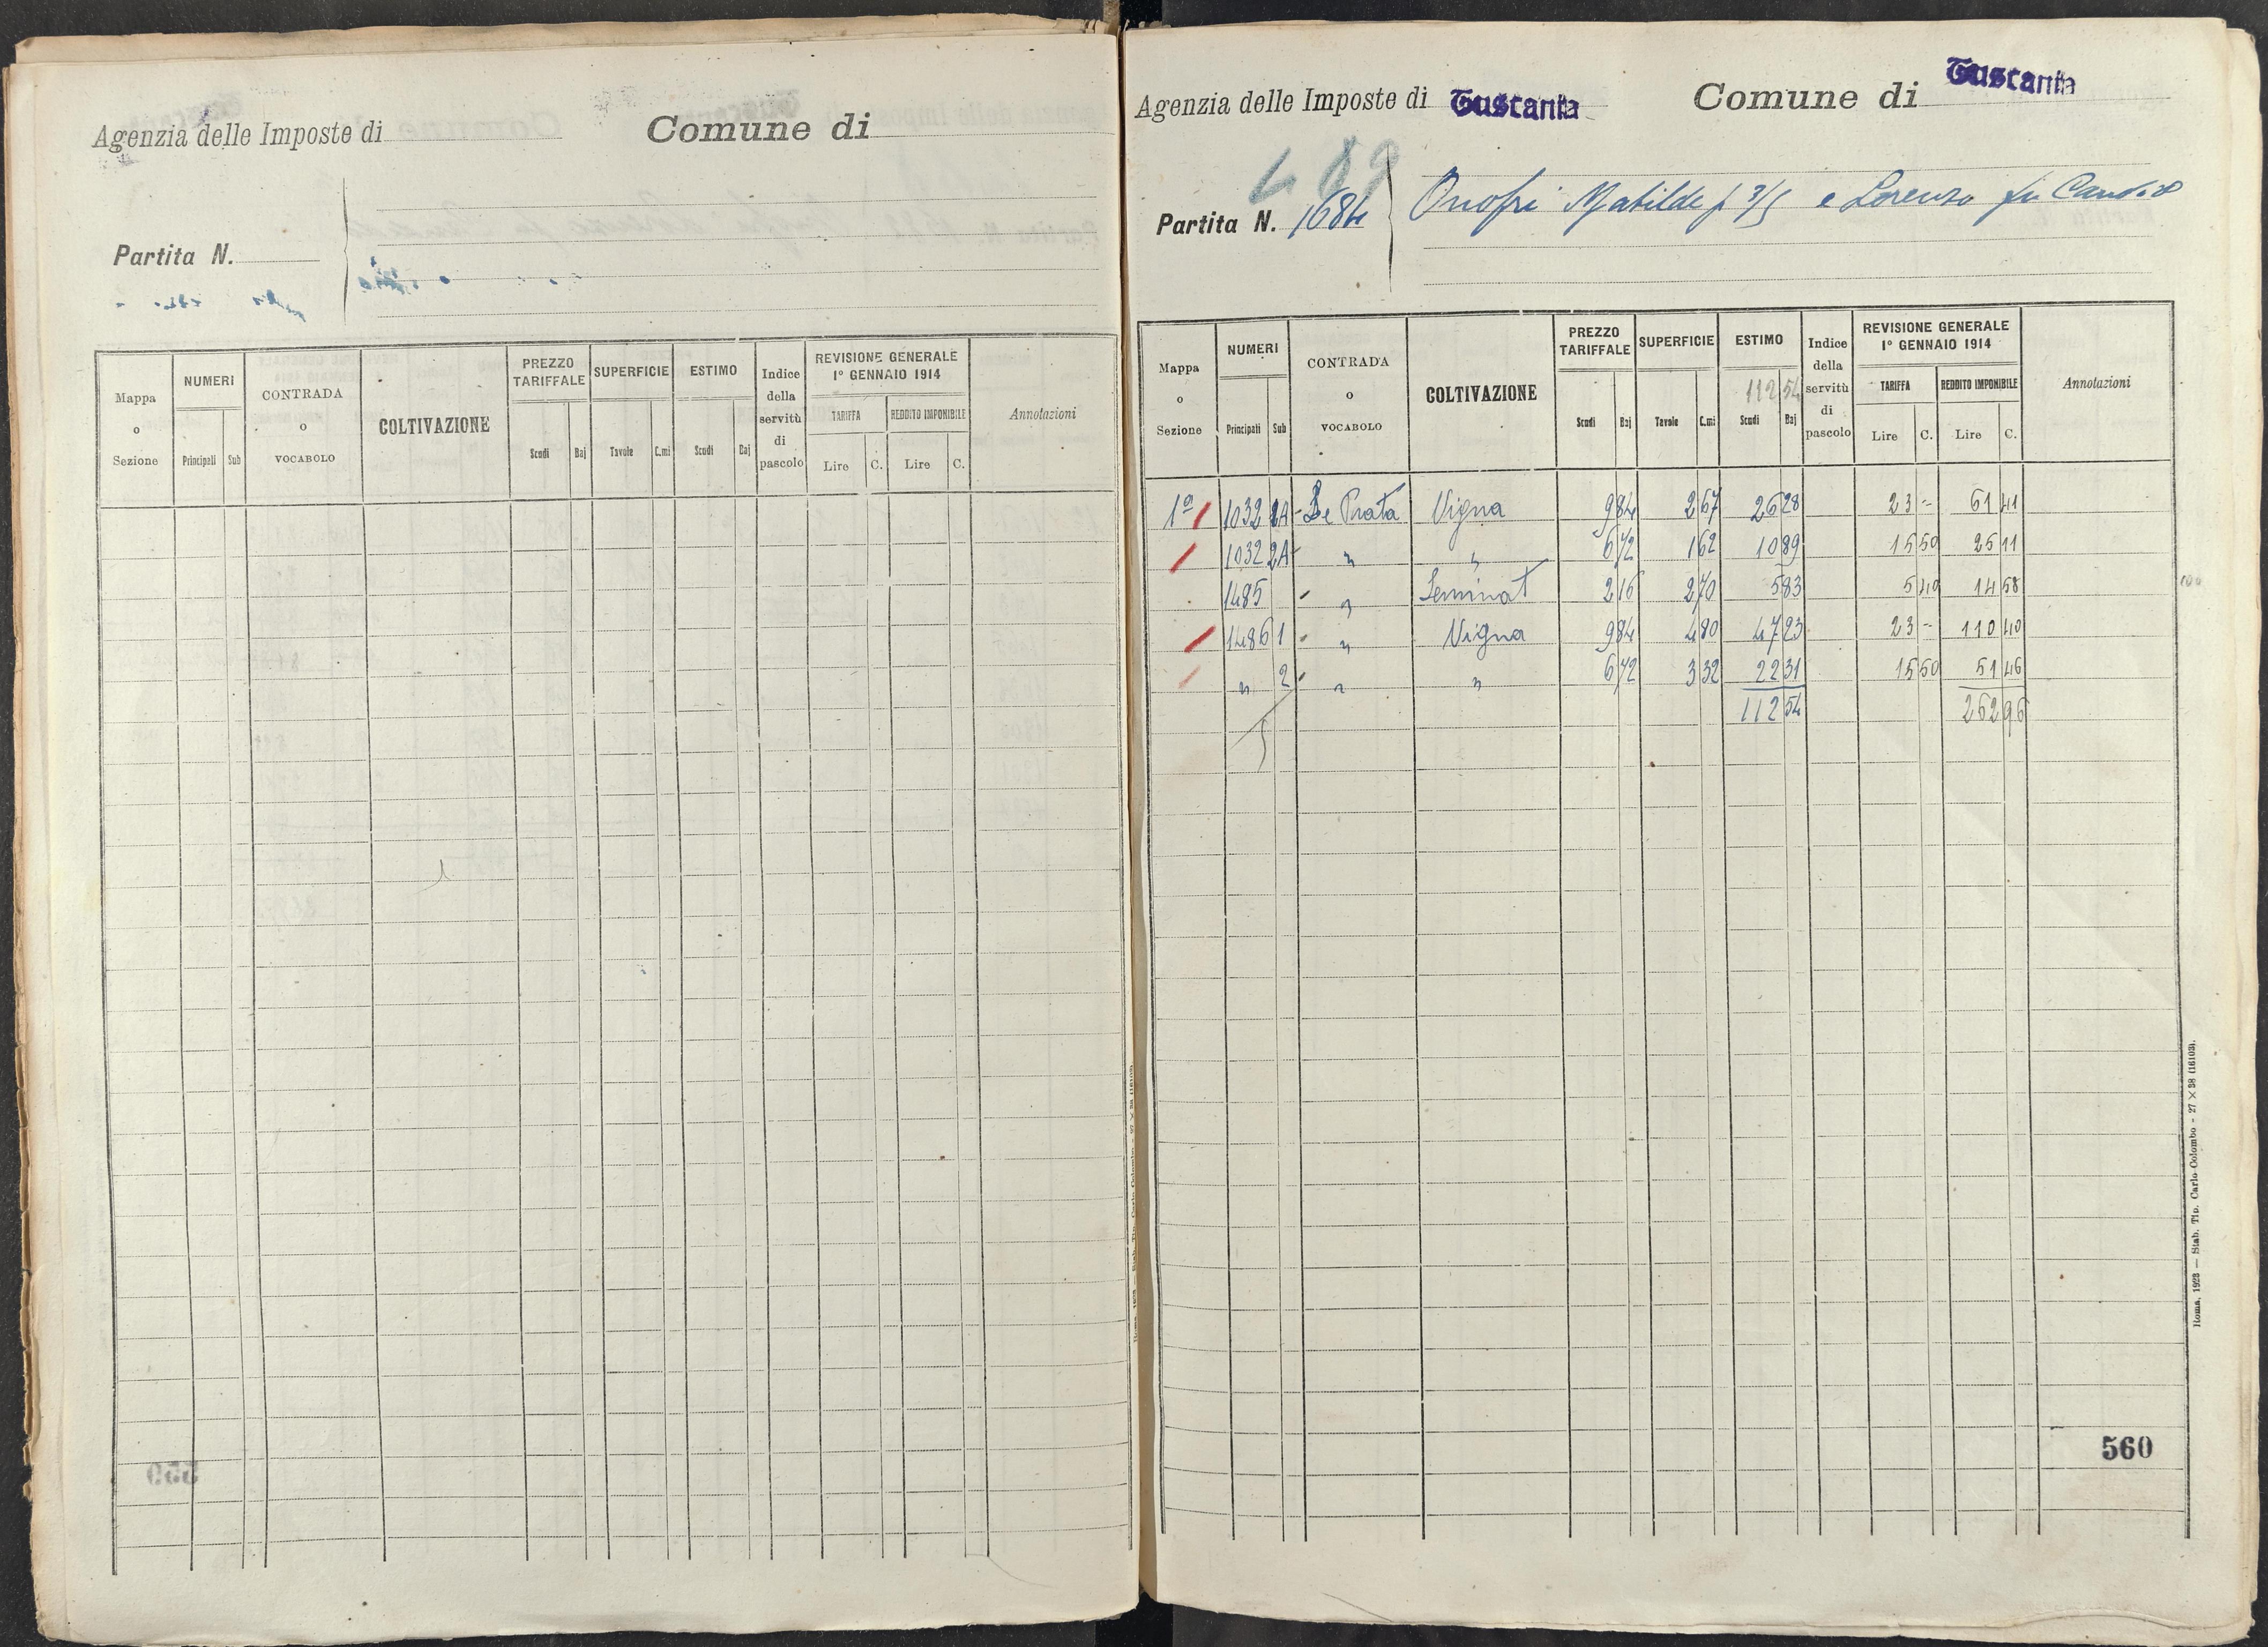 Agenzia delle Imposte di Comune di
Partita N.
Mappa o Sezione NUMERI Principali Sub CONTRADA o VOCABOLO COLTIVAZIONE PREZZO TARIFFALE Scudi Baj SUPERFICIE Tavole C.mi ESTIMO Scudi Baj Indice della servitù di pascolo REVISIONE GENERALE 1º GENNAIO 1914 TARIFFA Lire C. REDDITO IMPONIBILE Lire C. Annotazioni
Agenzia delle Imposte di Tuscania Comune di Tuscania
489
Partita N. 1684 Onofri Matilde p 3/5 e Lorenzo fu Candido
Mappa o Sezione NUMERI Principali Sub CONTRADA o VOCABOLO COLTIVAZIONE PREZZO TARIFFALE Scudi Baj SUPERFICIE Tavole C.mi ESTIMO 112 54 Scudi Baj Indice della servitù di pascolo REVISIONE GENERALE 1º GENNAIO 1914 TARIFFA Lire C. REDDITO IMPONIBILE Lire C. Annotazioni
1ª 1032 1A Le Prata Vigna 9 84 2 67 26 28 23 - 61 41
1032 2A " " 6 72 1 62 10 89 15 50 25 11
1485 " Seminat 2 16 2 70 5 83 5 40 14 58
1486 1 " Vigna 9 84 4 80 47 23 23 - 110 40
" 2 " " 6 72 3 32 22 31 15 50 51 46
112 54 262 96
560
Roma, 1923 — Stab. Tip. Carlo Colombo - 27 × 38 (16103).